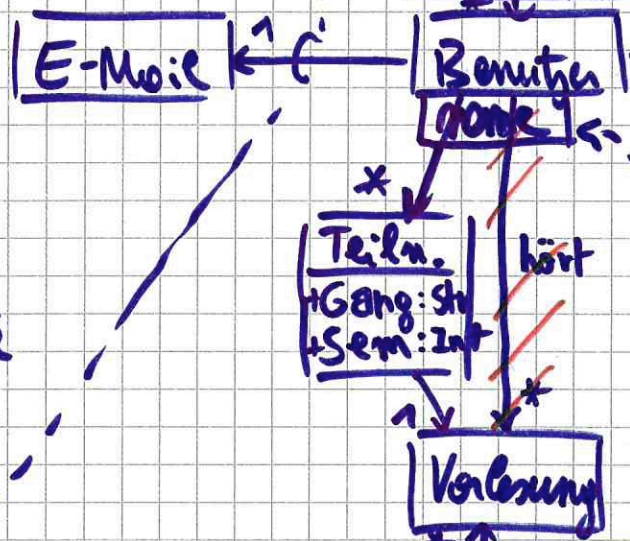 E-Mail
1
Benutzer
name
*
Teiln.
+Gang: Str
+Sem: Int
hört
*
1
Vorlesung